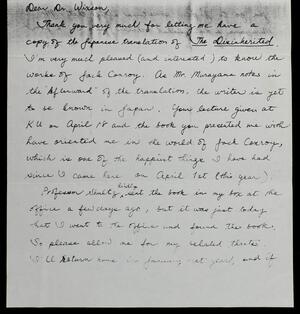 Dear Dr. Wixson,
Thank you very much for letting me have a
copy of the Japanese translation of The Disinherited
I'm very much pleased (and interested) to know the
works of Jack Conroy. As Mr. Murayama notes in
the "Afterward" of the translation, the writer is yet
to be known in Japan. Your lecture given at
KU on April 18 and the book you presented me with
have oriented me in the world of Jack Conroy,
which is one of the happiest things I have had
since I came here on April 1st (this year).
Professor kindly sent the book in my box at the
office a few days ago, but it was just today
that I went to the office and found the book.
So please allow me for my belated thanks.
I'll return home in January next year, and if